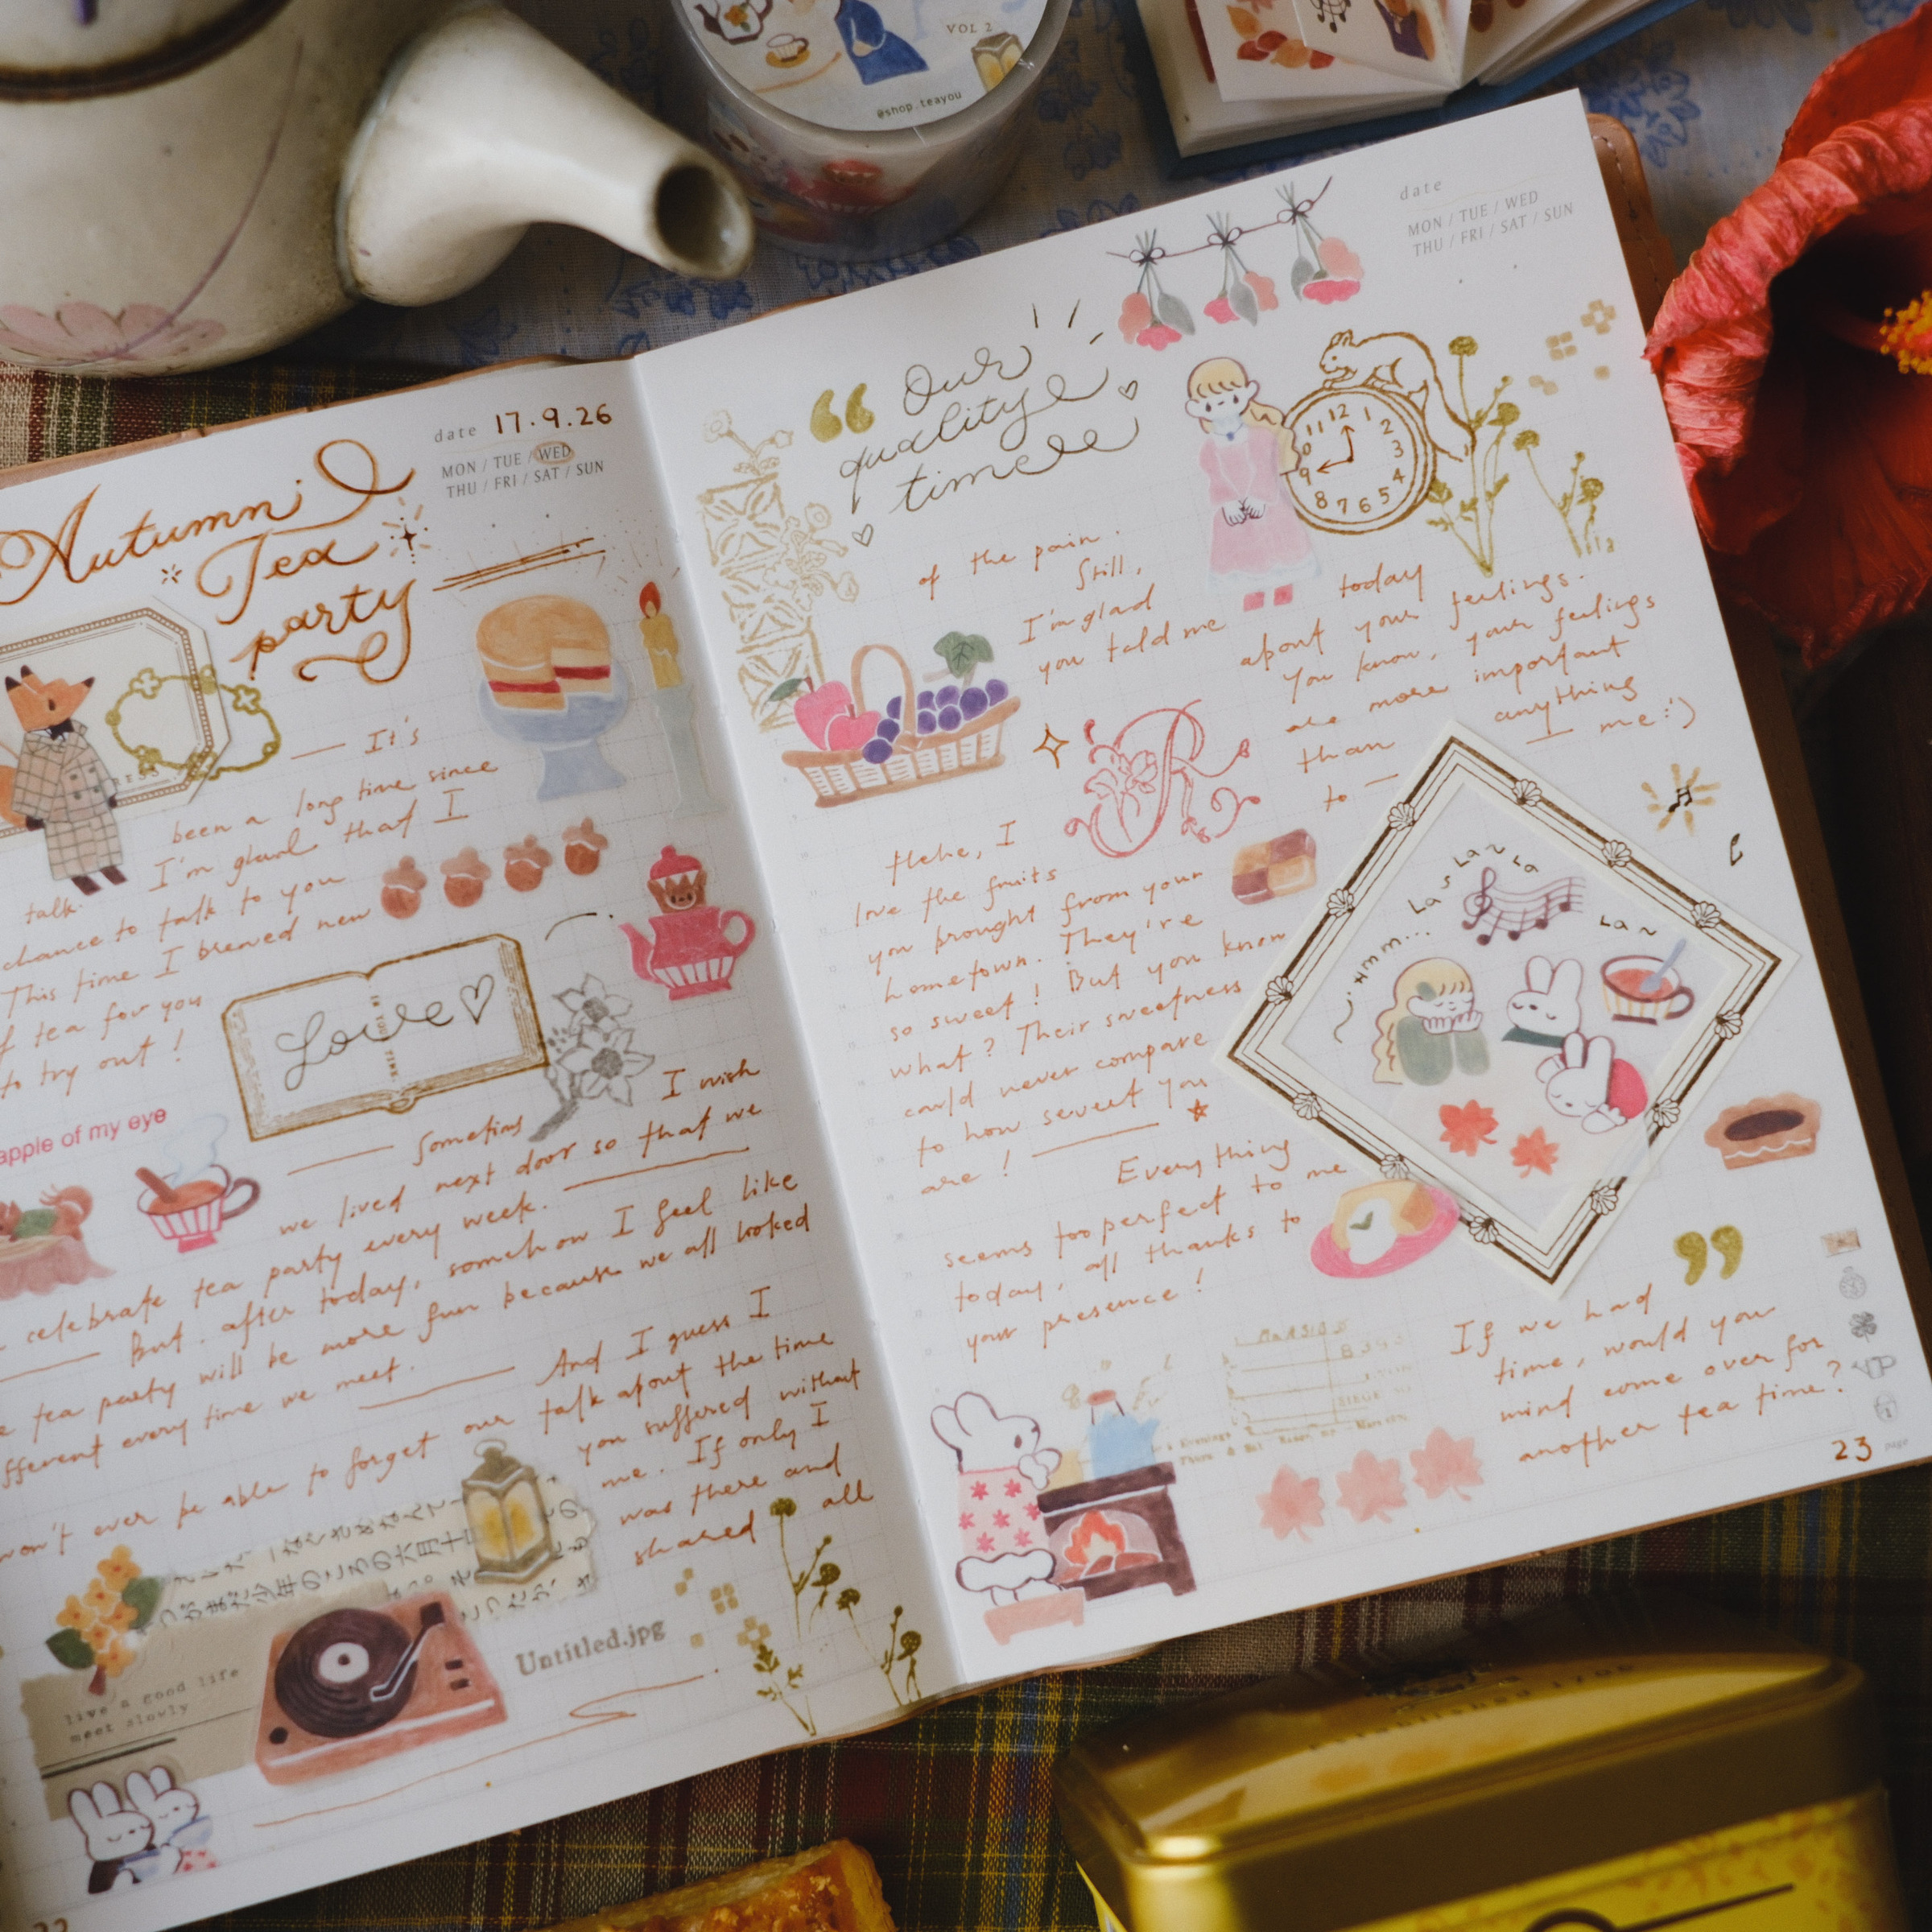 VOL 2
@shop.teayou
date 17.9.26
MON / TUE / WED
THU / FRI / SAT / SUN
Autumn
Tea
party
It's
been a long time since
I'm glad that I
talk.
chance to talk to you
This time I brewed new
tea for you
to try out!
Love
IN YOU
FIND.
apple of my eye
Sometimes I wish
we lived next door so that we
celebrate tea party every week.
But. after today, somehow I feel like
tea party will be more fun because we all looked
fferent every time we meet.
And I guess I
won't ever be able to forget our talk about the time
you suffered without
me. If only I
was there and
shared all
live a good life
meet slowly
Untitled.jpg
date
MON / TUE / WED
THU / FRI / SAT / SUN
“ Our
quality
time
12 1 2 3 4 5 6 7 8 9 0 11
of the pain.
Still,
I'm glad
you told me today
about your feelings.
You know, your feelings
are more important
than anything
to — me :)
R
Hehe, I
love the fruits
you brought from your
hometown. They're
so sweet! But you know
what? Their sweetness
could never compare
to how sweet you
are!
Everything
seems too perfect to me
today, all thanks to
your presence!
Hmm...
La s La ~ La
La ~
”
If we had
time, would you
mind come over for
another tea time?
23 page